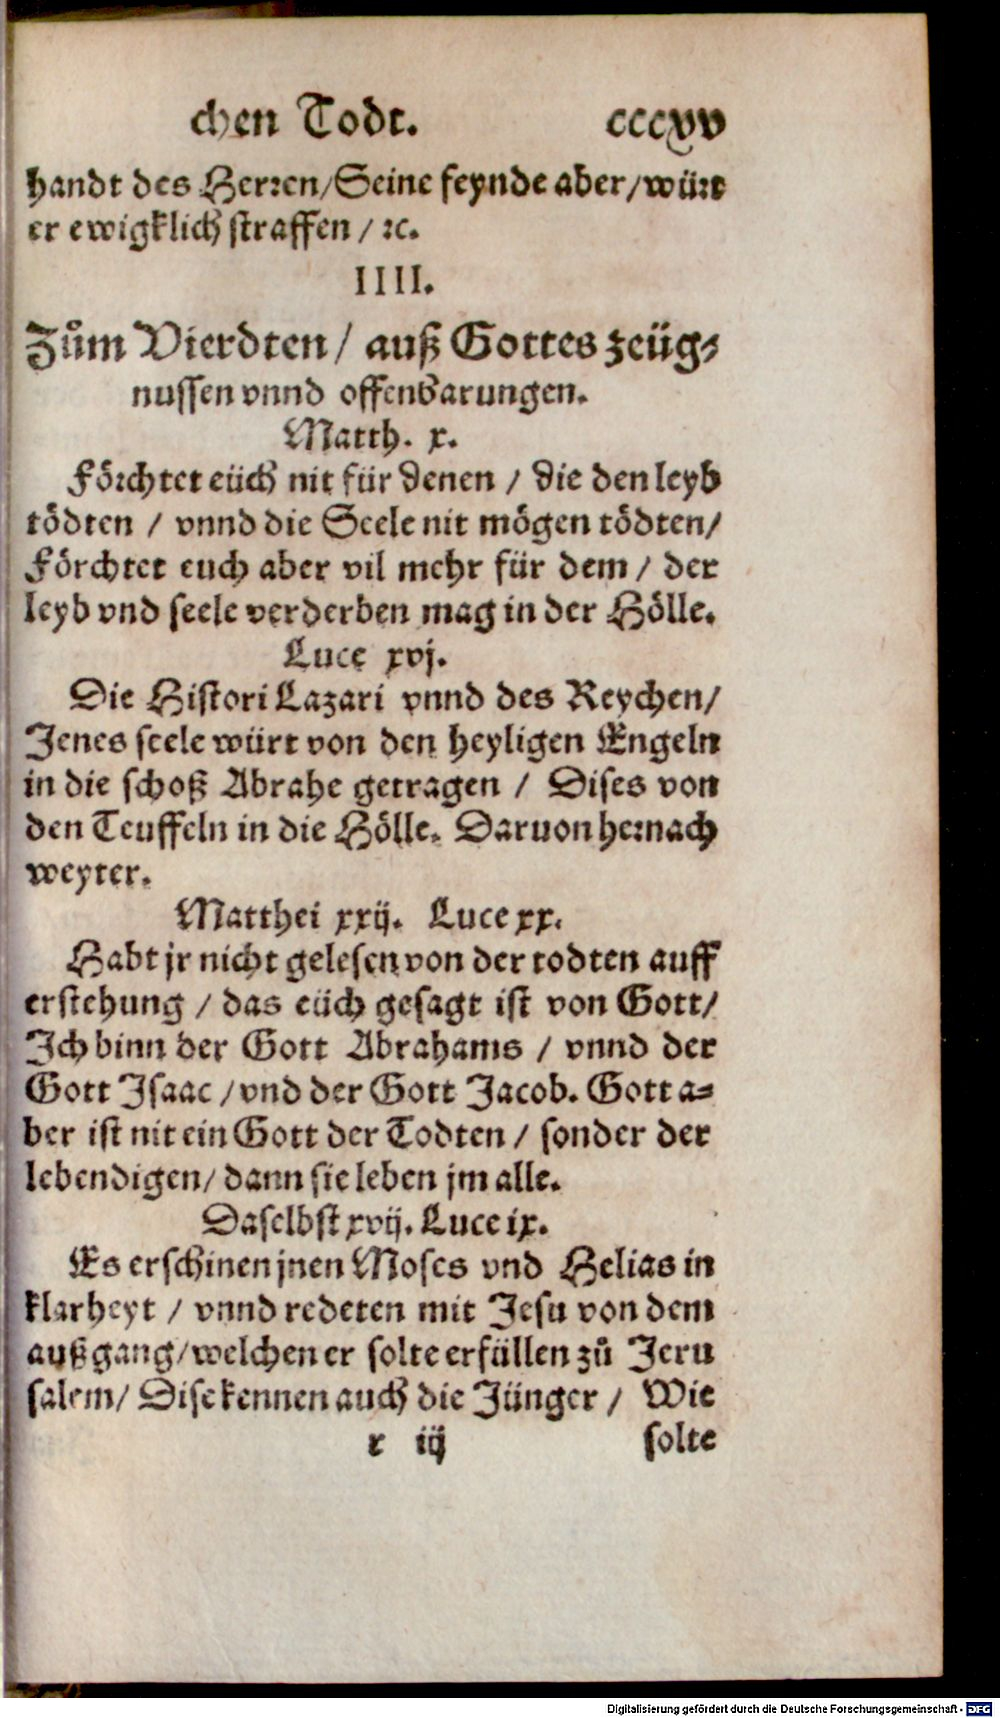 chen Todt. cccxv
handt des Herren/Seine feynde aber/würt
er ewigklich straffen / ꝛc.
IIII.
Zům Vierdten / auß Gottes zeüg⸗
nussen vnnd offenbarungen.
Matth. x.
Förchtet eüch nit für denen / die den leyb
tödten / vnnd die Seele nit mögen tödten/
Förchtet euch aber vil mehr für dem / der
leyb vnd seele verderben mag in der Hölle.
Luce xvj.
Die Histori Lazari vnnd des Reychen/
Jenes seele würt von den heyligen Engeln
in die schoß Abrahe getragen / Dises von
den Teuffeln in die Hölle. Daruon hernach
weyter.
Matthei xxij. Luce xx.
Habt jr nicht gelesen von der todten auff
erstehung / das eüch gesagt ist von Gott/
Ich binn der Gott Abrahams / vnnd der
Gott Isaac /vnd der Gott Jacob. Gott a⸗
ber ist nit ein Gott der Todten / sonder der
lebendigen/ dann sie leben jm alle.
Daselbst xvij. Luce ix.
Es erschinen jnen Moses vnd Helias in
klarheyt / vnnd redeten mit Jesu von dem
außgang/welchen er solte erfüllen zů Jeru
salem/ Dise kennen auch die Jünger / Wie
r iij solte
Digitalisierung gefördert durch die Deutsche Forschungsgemeinschaft - DFG